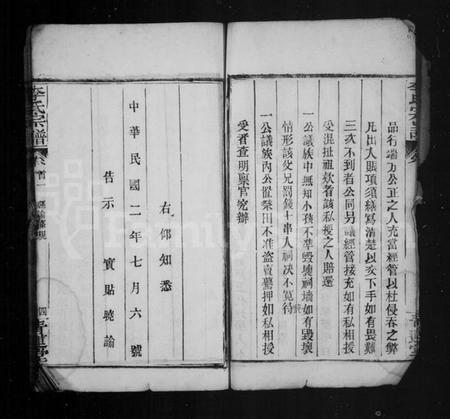 品行端方公正之人充當經管以杜侵吞之弊
凡出入賬項須繕寫清楚以交下手如有畏難
三次不到者公同另議經管接充如有私相授
受混扯祖欵者該私授之人賠還
一公議族中無知小孩不準毀塊祠墻如有毀壞
情形該父兄罰錢十串入祠决不寬待
一公議族內公置祭田不准盜賣塟押如私相授
受者查明稟官究辦
右仰知悉
中華民國二年七月六號
告示 實貼曉諭
李氏宗譜
卷首一
四